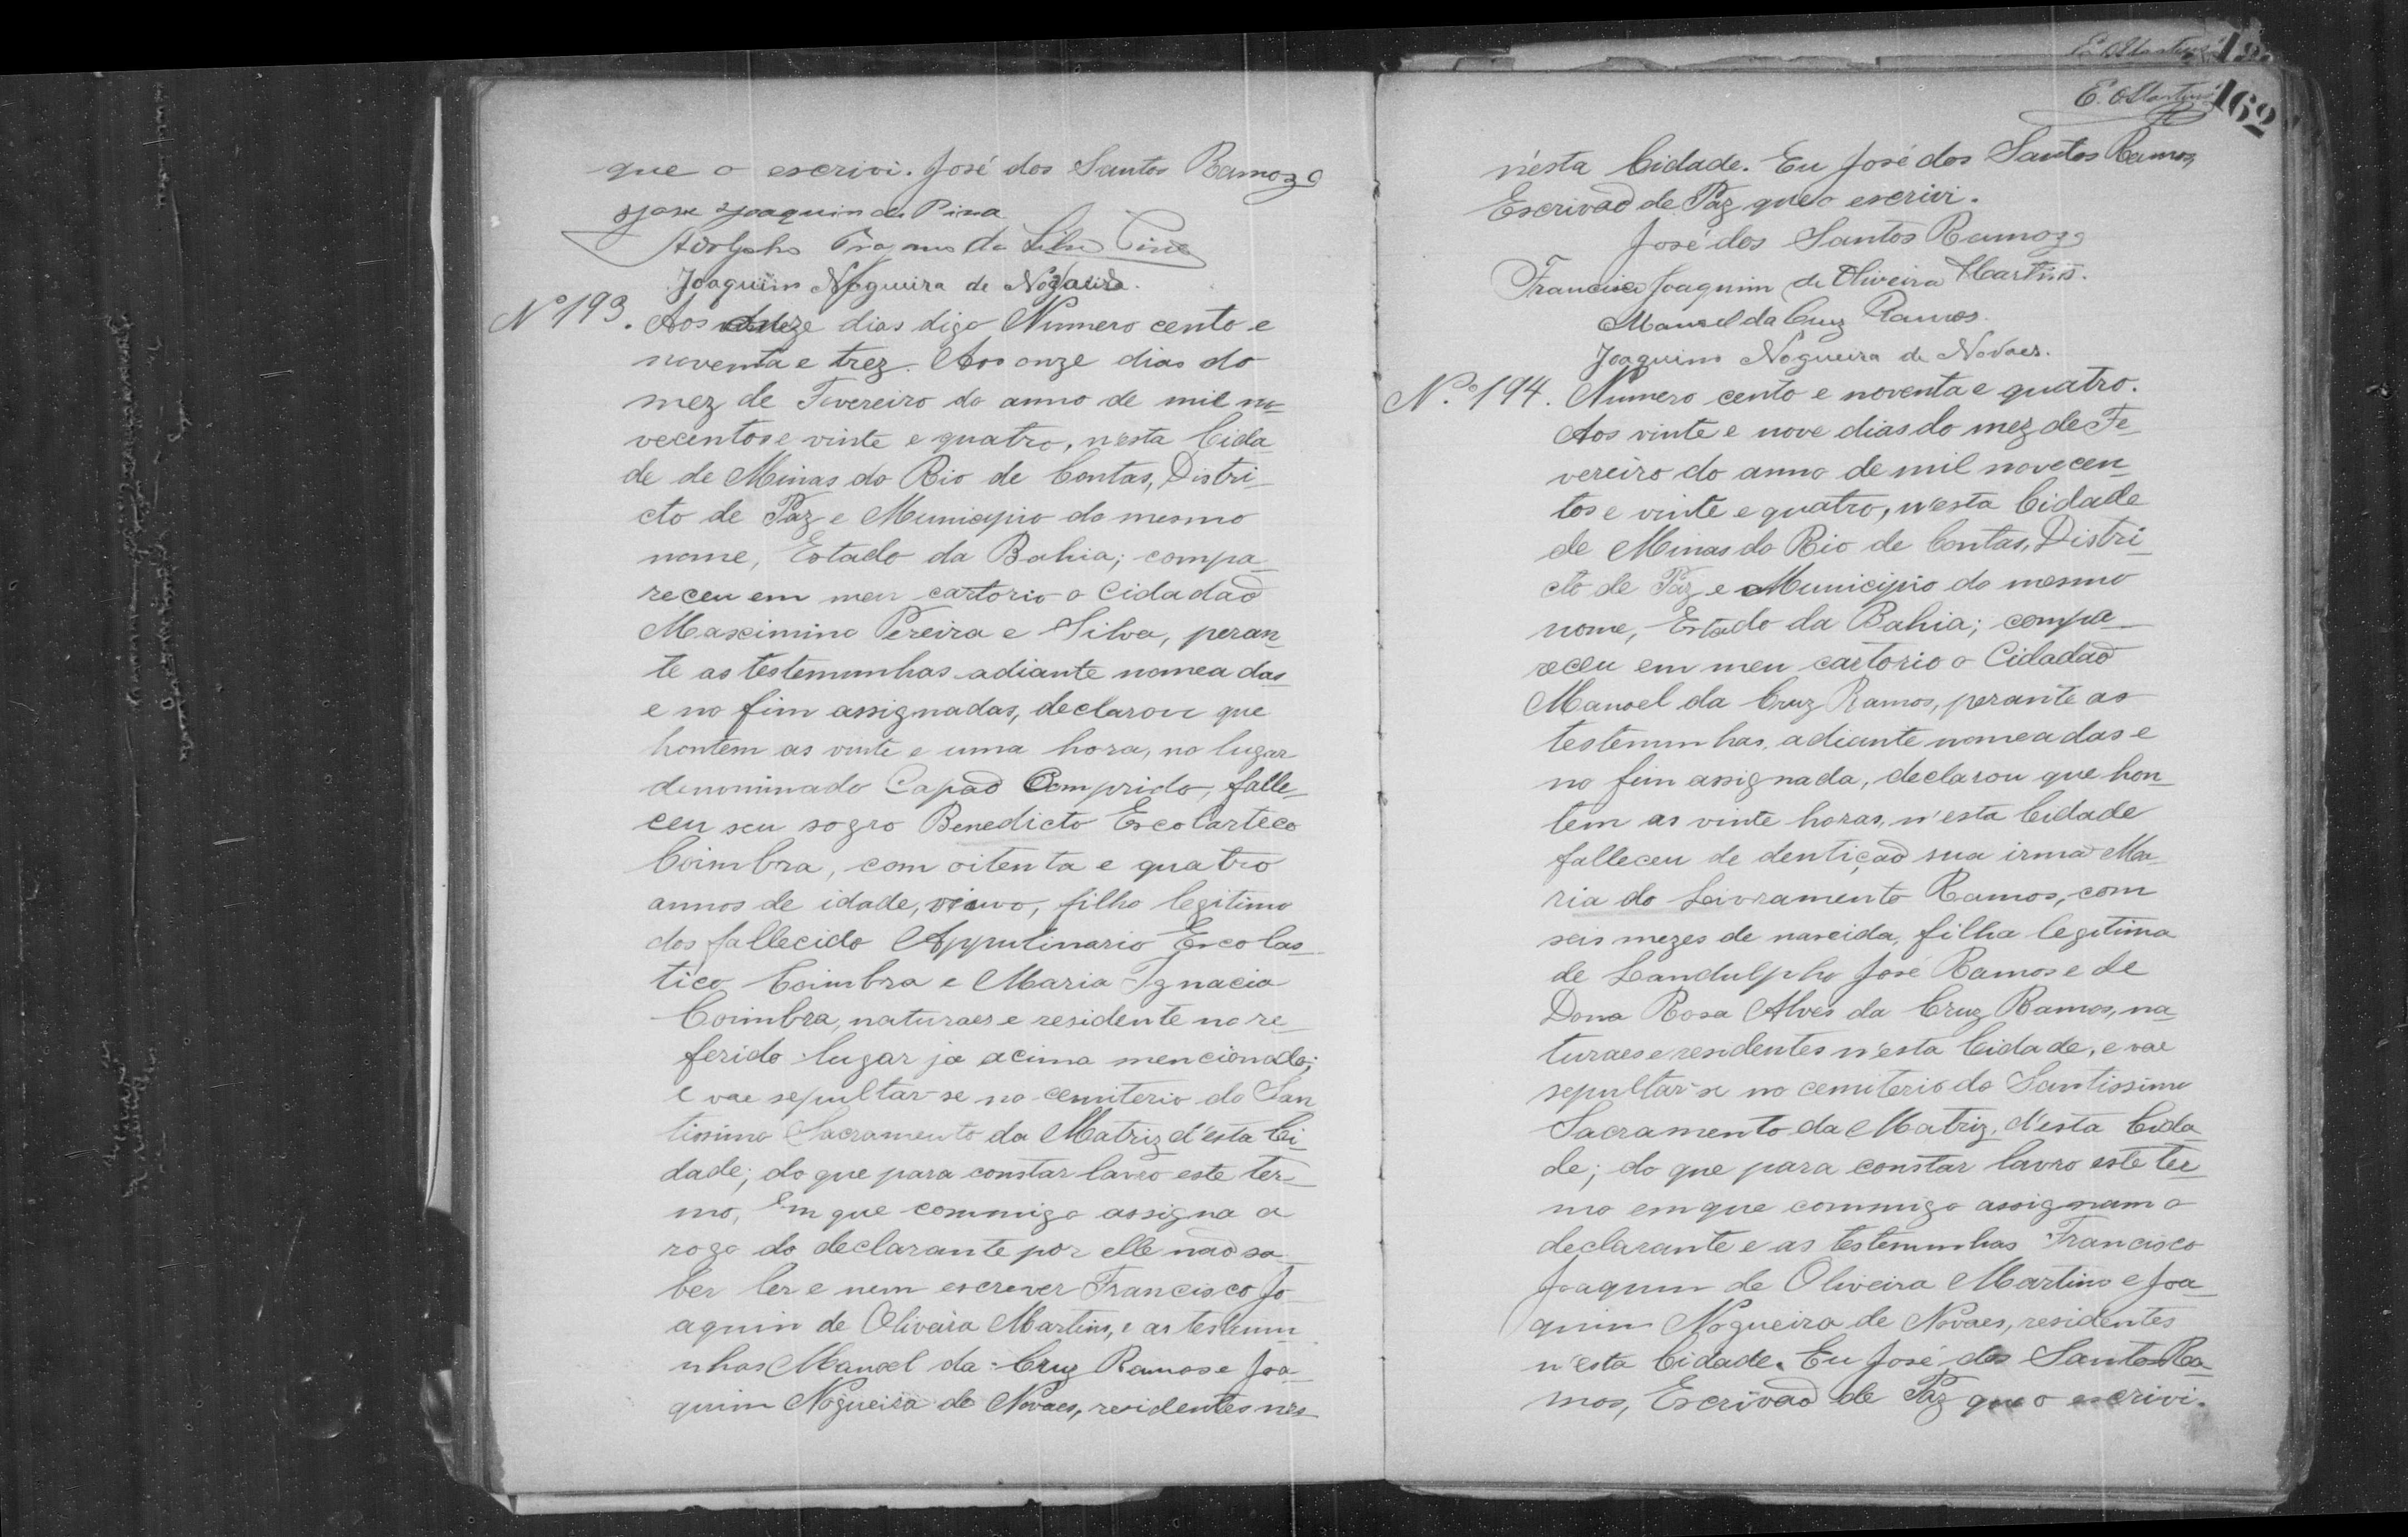 que o escrivi. José dos Santos Ramos
José Joaquim de Pina
Adolpho da Silva Pina
Joaquim Nogueira de Novaes
Nº 193. Aos onze dias digo Numero cento e
noventa e trez. Aos onze dias do
mez de Fevereiro do anno de mil no_
vecentos e vinte e quatro, n'esta Cida_
de de Minas do Rio de Contas, Distri_
cto de Paz e Municipio do mesmo
nome, Estado da Bahia; compa_
receu em meu cartorio o Cidadaõ
Maximino Pereira e Silva, peran_
te as testemunhas adiante nomeadas
e no fim assignadas, declarou que
hontem as vinte e uma hora, no lugar
denominado Capaõ Comprido, falle_
ceu seu sogro Benedicto Escolarteco
Coimbra, com oitenta e quatro
annos de idade, viuvo, filho legitimo
dos fallecido Apputinario Escolas_
tico Coimbra e Maria Ignacia
Coimbra, naturaes e residente no re_
ferido lugar ja acima mencionado;
e vae sepultar-se no cemiterio do San
tissimo Sacramento da Matriz d'esta Ci_
dade; do que para constar lavro este ter_
mo, Em que commigo assigna a
rogo do declarante por elle naõ sa_
ber ler e nem escrever Francisco Jo_
aquim de Oliveira Martins, e as testemu_
nhas Manoel da Cruz Ramos e Joa_
quim Nogueira de Novaes, residentes nes_
E. O Martins 162
n'esta Cidade. Eu José dos Santos Ramos,
Escrivaõ de Paz que o escrivi.
José dos Santos Ramos
Francisco Joaquim de Oliveira Martins.
Manoel da Cruz Ramos.
Joaquim Nogueira de Novaes.
N.º 194. Numero cento e noventa e quatro.
Aos vinte e nove dias do mez de Fe_
vereiro do anno de mil novecen_
tos e vinte e quatro, n'esta Cidade
de Minas do Rio de Contas, Distri_
cto de Paz e Municipio do mesmo
nome, Estado da Bahia; compa_
receu em meu cartorio o Cidadaõ
Manoel da Cruz Ramos, perante as
testemunhas, adiante nomeadas e
no fim assignada, declarou que hon_
tem as vinte horas, n'esta Cidade
falleceu de dentiçaõ sua irmã Ma_
ria do Livramento Ramos, com
seis mezes de nascida, filha legitima
de Landulpho José Ramos e de
Dona Rosa Alves da Cruz Ramos, na_
turaes e residentes n'esta Cidade, e vae
sepultar-se no cemiterio do Santissimo
Sacramento da Matriz, d'esta Cida_
de; do que para constar lavro este ter_
mo em que commigo assignam o
declarante e as testemunhas Francisco
Joaquim de Oliveira Martins e Joa_
quim Nogueira de Novaes, residentes
n'esta Cidade. Eu José dos Santos Ra_
mos, Escrivaõ de Paz que o escrivi.